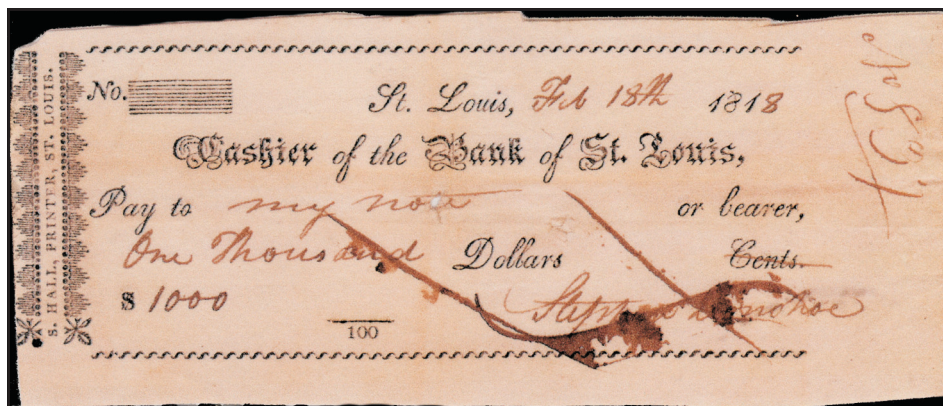 S. HALL, PRINTER, ST. LOUIS.
No.
St. Louis, Feb 18th 1818
Cashier of the Bank of St. Louis,
Pay to my note or bearer,
One Thousand Dollars Cents.
$ 1000
100
Stephen Donohoe